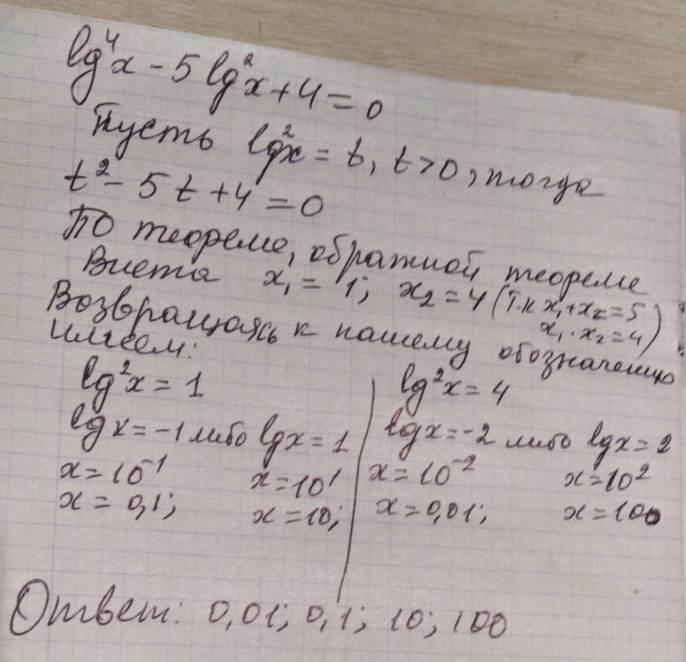 lg⁴x - 5 lg²x + 4 = 0
Пусть lg²x = t, t > 0, тогда
t² - 5t + 4 = 0
По теореме, обратной теореме
Виета x₁ = 1; x₂ = 4 (т.к x₁ + x₂ = 5
x₁ · x₂ = 4)
Возвращаясь к нашему обозначению
имеем:
lg²x = 1 | lg²x = 4
lg x = -1 либо lg x = 1 | lg x = -2 либо lg x = 2
x = 10⁻¹ x = 10¹ | x = 10⁻² x = 10²
x = 0,1; x = 10; | x = 0,01; x = 100
Ответ: 0,01; 0,1; 10; 100